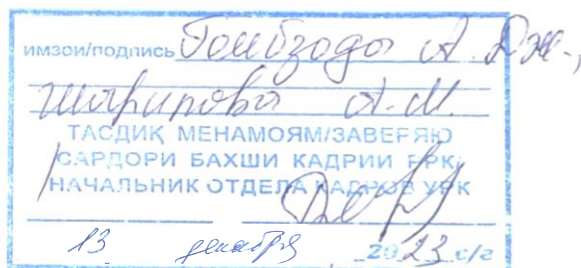 имзои/подпись Гоибзоды А. Дж.,
Шарипова А. М.
ТАСДИҚ МЕНАМОЯМ/ЗАВЕРЯЮ
САРДОРИ БАХШИ КАДРИИ
НАЧАЛЬНИК ОТДЕЛА КАДРОВ
13 декабря 2023 с/г